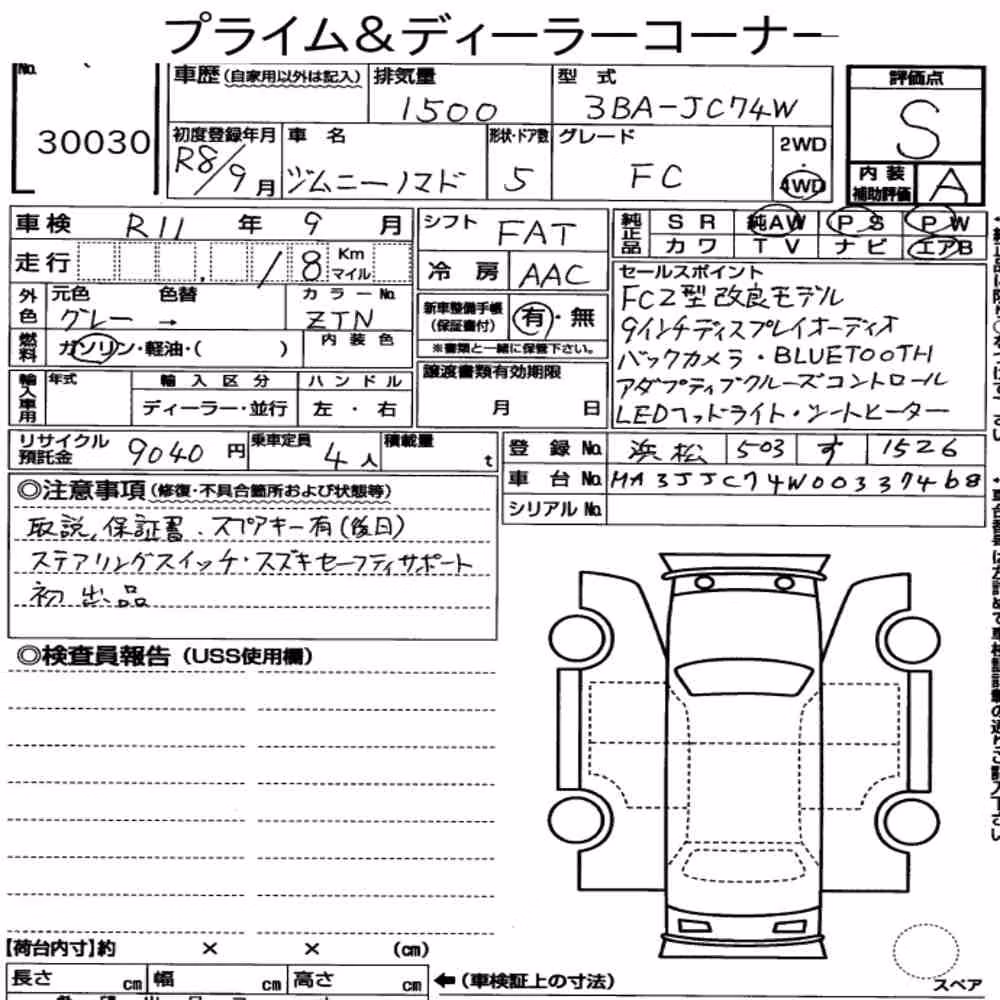 プライム＆ディーラーコーナー
No.
30030
車歴 (自家用以外は記入)
排気量
1500
型 式
3BA-JC74W
評価点
S
初度登録年月
R8/9月
車 名
ジムニーノマド
形状・ドア数
5
グレード
FC
2WD
4WD
内装補助評価
A
車検 R11 年 9 月
走行 18 Km マイル
外色
元色 色替 カラーNo.
グレー → ZTN
燃料
ガソリン・軽油・( )
内装色
輸入車用
年式
輸入区分
ハンドル
ディーラー・並行
左・右
シフト FAT
冷房 AAC
新車整備手帳(保証書付)
有・無
※書類と一緒に保管下さい。
譲渡書類有効期限
月 日
純正品
SR 純AW PS PW
カワ TV ナビ エアB
セールスポイント
FC2型改良モデル
9インチディスプレイオーディオ
バックカメラ・BLUETOOTH
アダプティブクルーズコントロール
LEDヘッドライト・シートヒーター
リサイクル預託金 9040 円
乗車定員 4 人
積載量 t
登録No. 浜松 503 す 1526
車台No.
シリアルNo.
◎注意事項 (修復・不具合箇所および状態等)
取説、保証書、スペアキー有(後日)
ステアリングスイッチ・スズキセーフティサポート
初出品
◎検査員報告 (USS使用欄)
【荷台内寸】約 × × (cm)
長さ cm 幅 cm 高さ cm
←(車検証上の寸法)
スペア